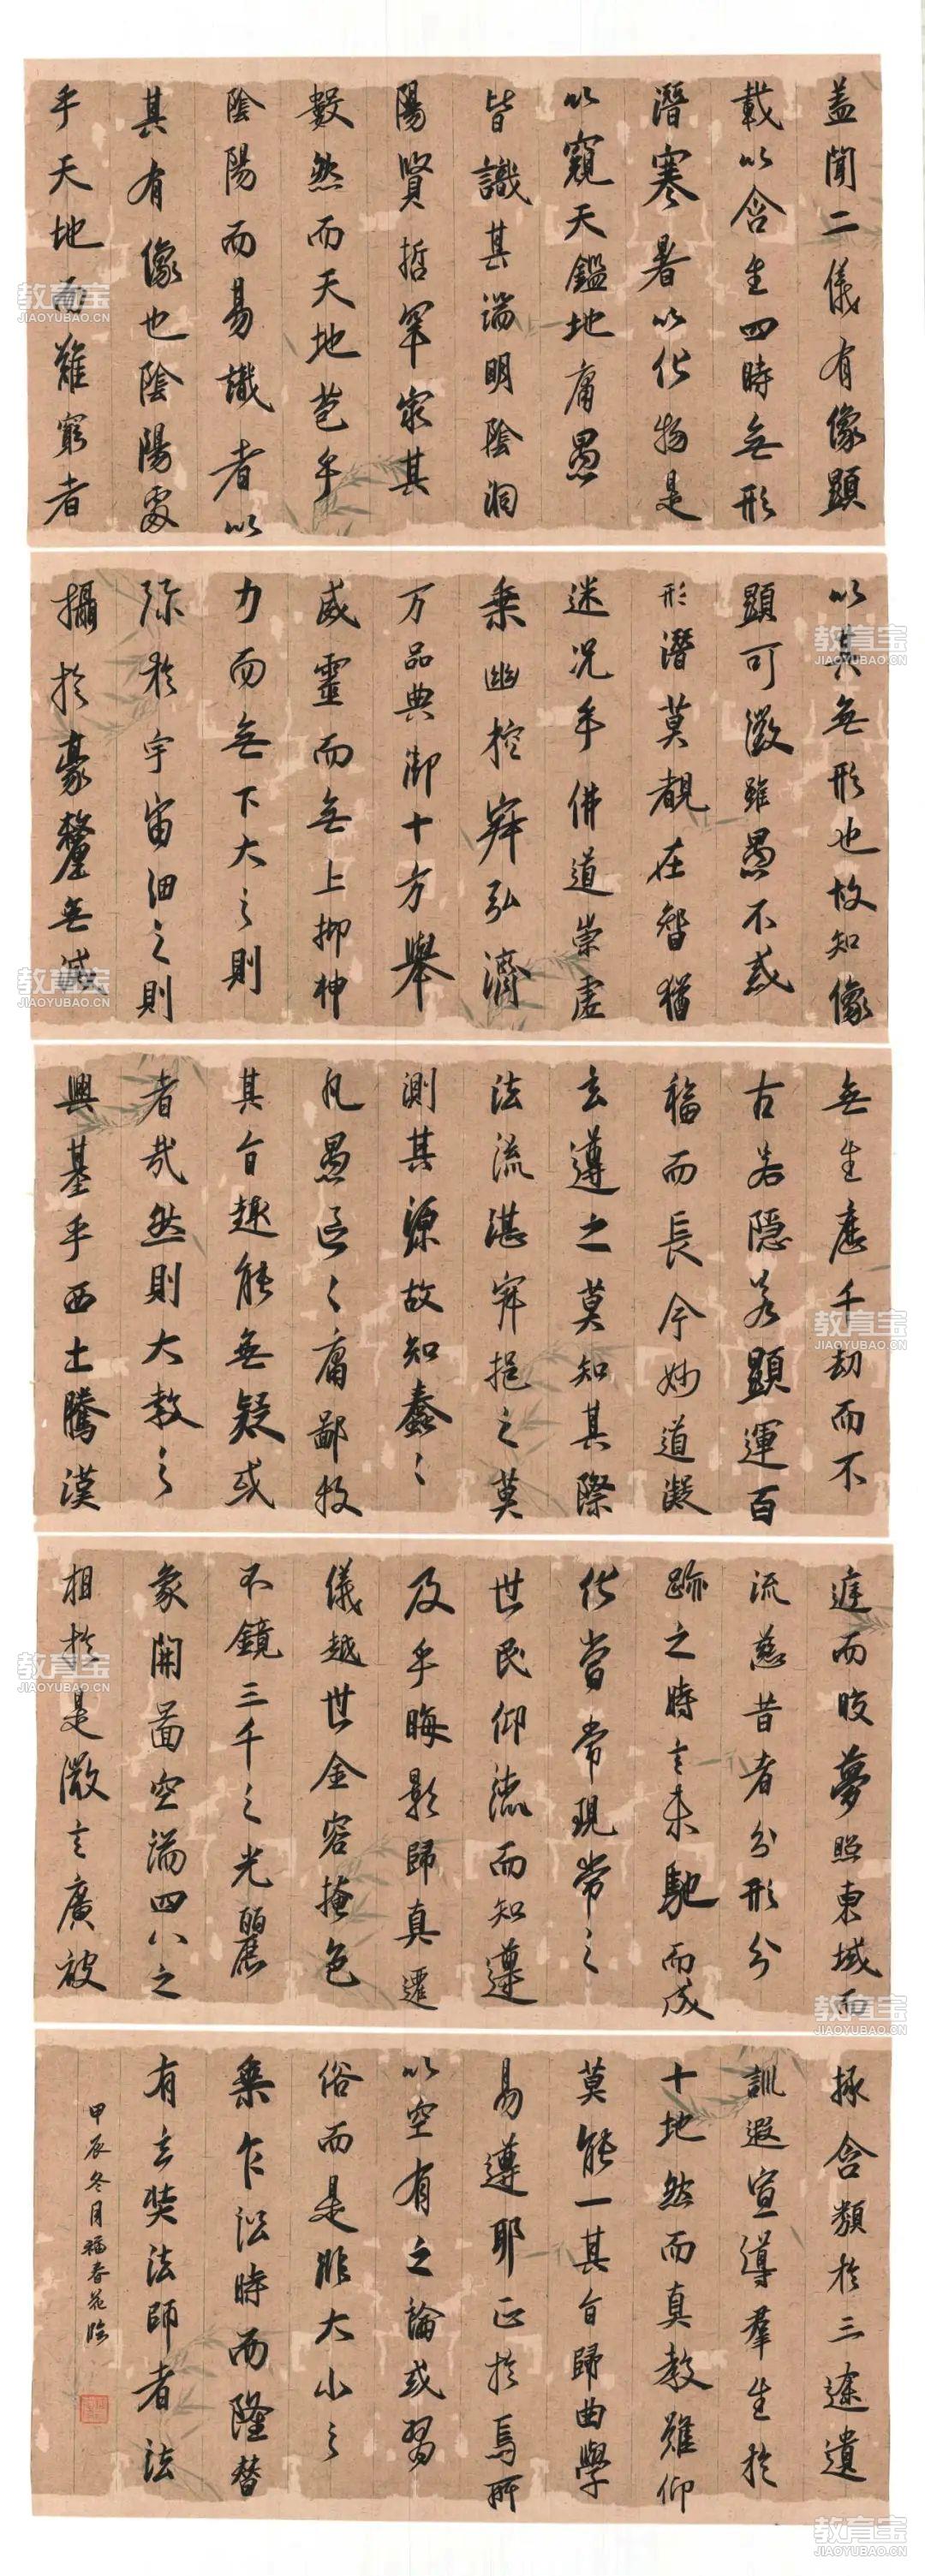 盖聞二儀有像顯
載以含生四時無形
潛寒暑以化物是
以窺天鑑地庸愚
皆識其端明陰洞
陽賢哲罕窮其
數然而天地苞乎
陰陽而易識者以
其有像也陰陽處
乎天地而難窮者
以其無形也故知像
顯可徵雖愚不惑
形潛莫覩在智猶
迷况乎佛道崇虛
乗幽控寂弘濟
万品典御十方舉
威靈而無上抑神
力而無下大之則
弥於宇宙細之則
攝於豪釐無滅
無生歷千劫而不
古若隱若顯運百
福而長今妙道凝
玄遵之莫知其際
法流湛寂挹之莫
測其源故知蠢〻
凡愚區〻庸鄙投
其旨趣能無疑或
者哉然則大教之
興基乎西土騰漢
庭而皎夢照東域而
流慈昔者分形分
跡之時言未馳而成
化當常現常之
世民仰德而知遵
及乎晦影歸真遷
儀越世金容掩色
不鏡三千之光麗
象開圖空端四八之
相於是微言廣被
拯含類於三塗遺
訓遐宣導羣生於
十地然而真教難仰
莫能一其旨歸曲學
易遵耶正於焉所
以空有之論或習
俗而是非大小之
乗乍訟時而隆替
有玄奘法師者法
甲辰冬月福春花臨
教育宝
JIAOYUBAO.CN
教育宝
JIAOYUBAO.CN
教育宝
JIAOYUBAO.CN
教育宝
JIAOYUBAO.CN
教育宝
JIAOYUBAO.CN
教育宝
JIAOYUBAO.CN
教育宝
JIAOYUBAO.CN